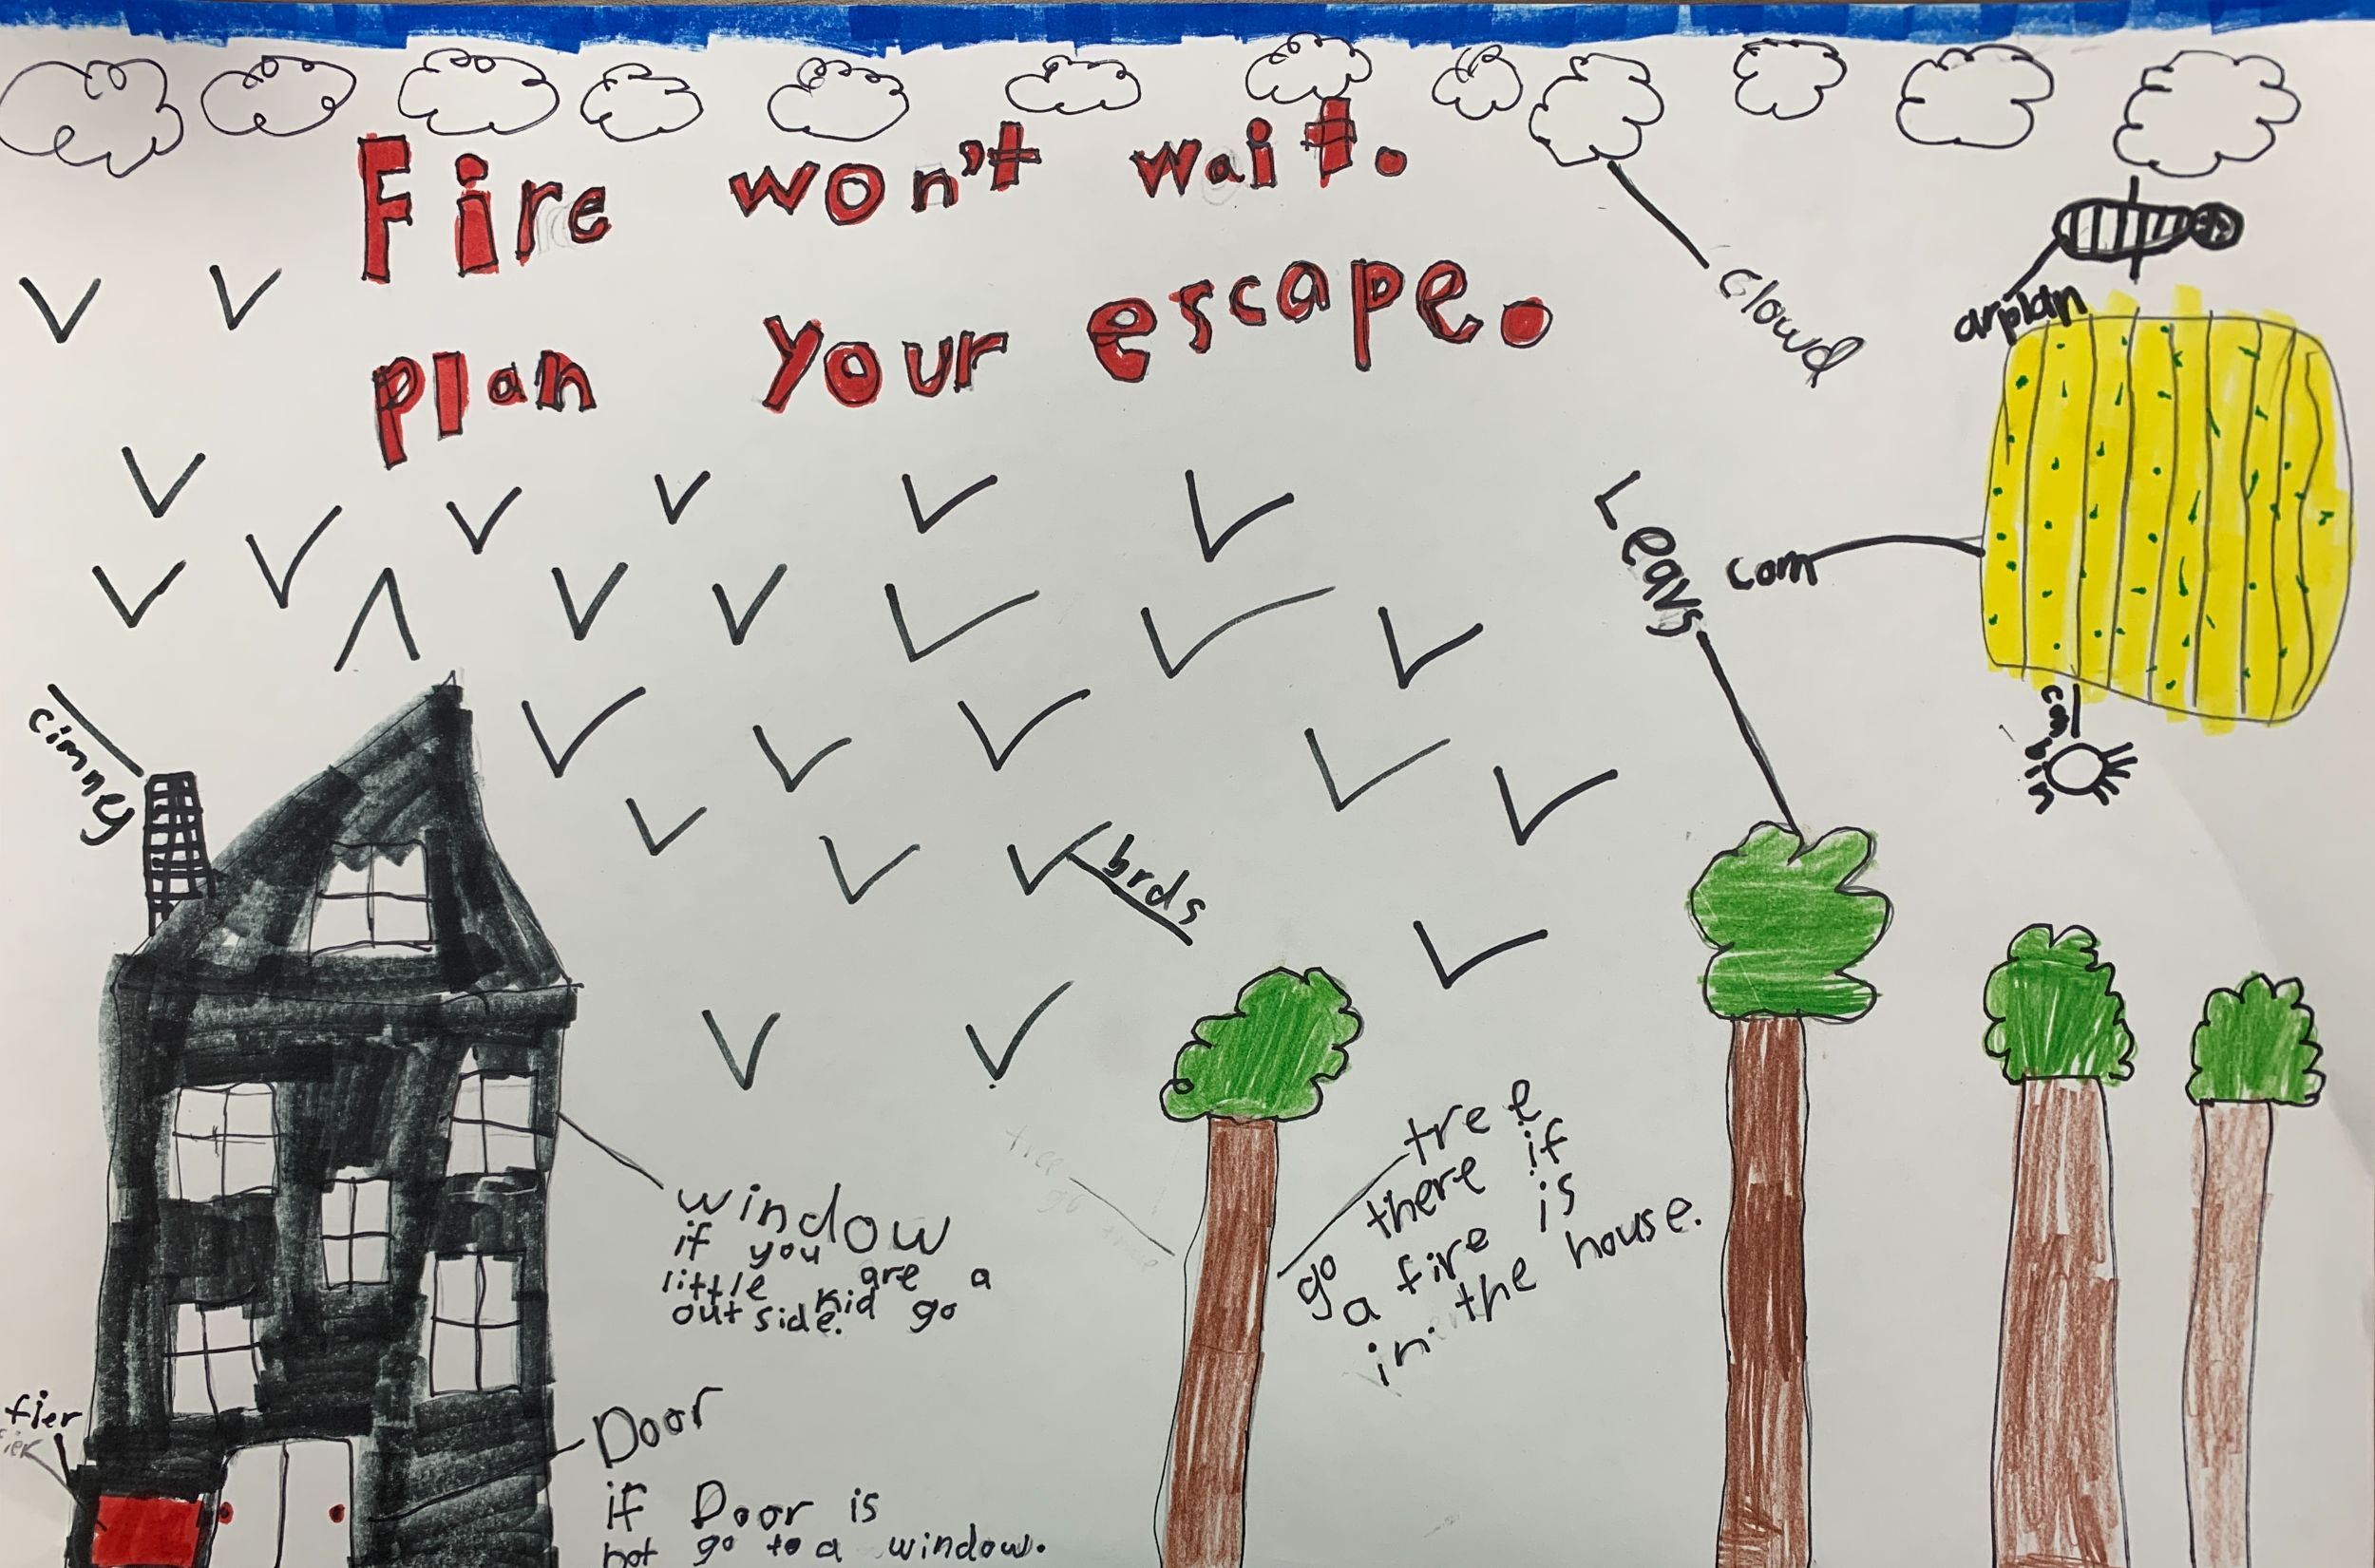 Fire won't wait.
plan your escape.
cloud
arplan
Leavs
corn
combin
cimney
brds
window
if you
little are a
kid go
outside.
tree
there if
go
a fire is
in the house.
fier
Door
if Door is
hot go to a window.